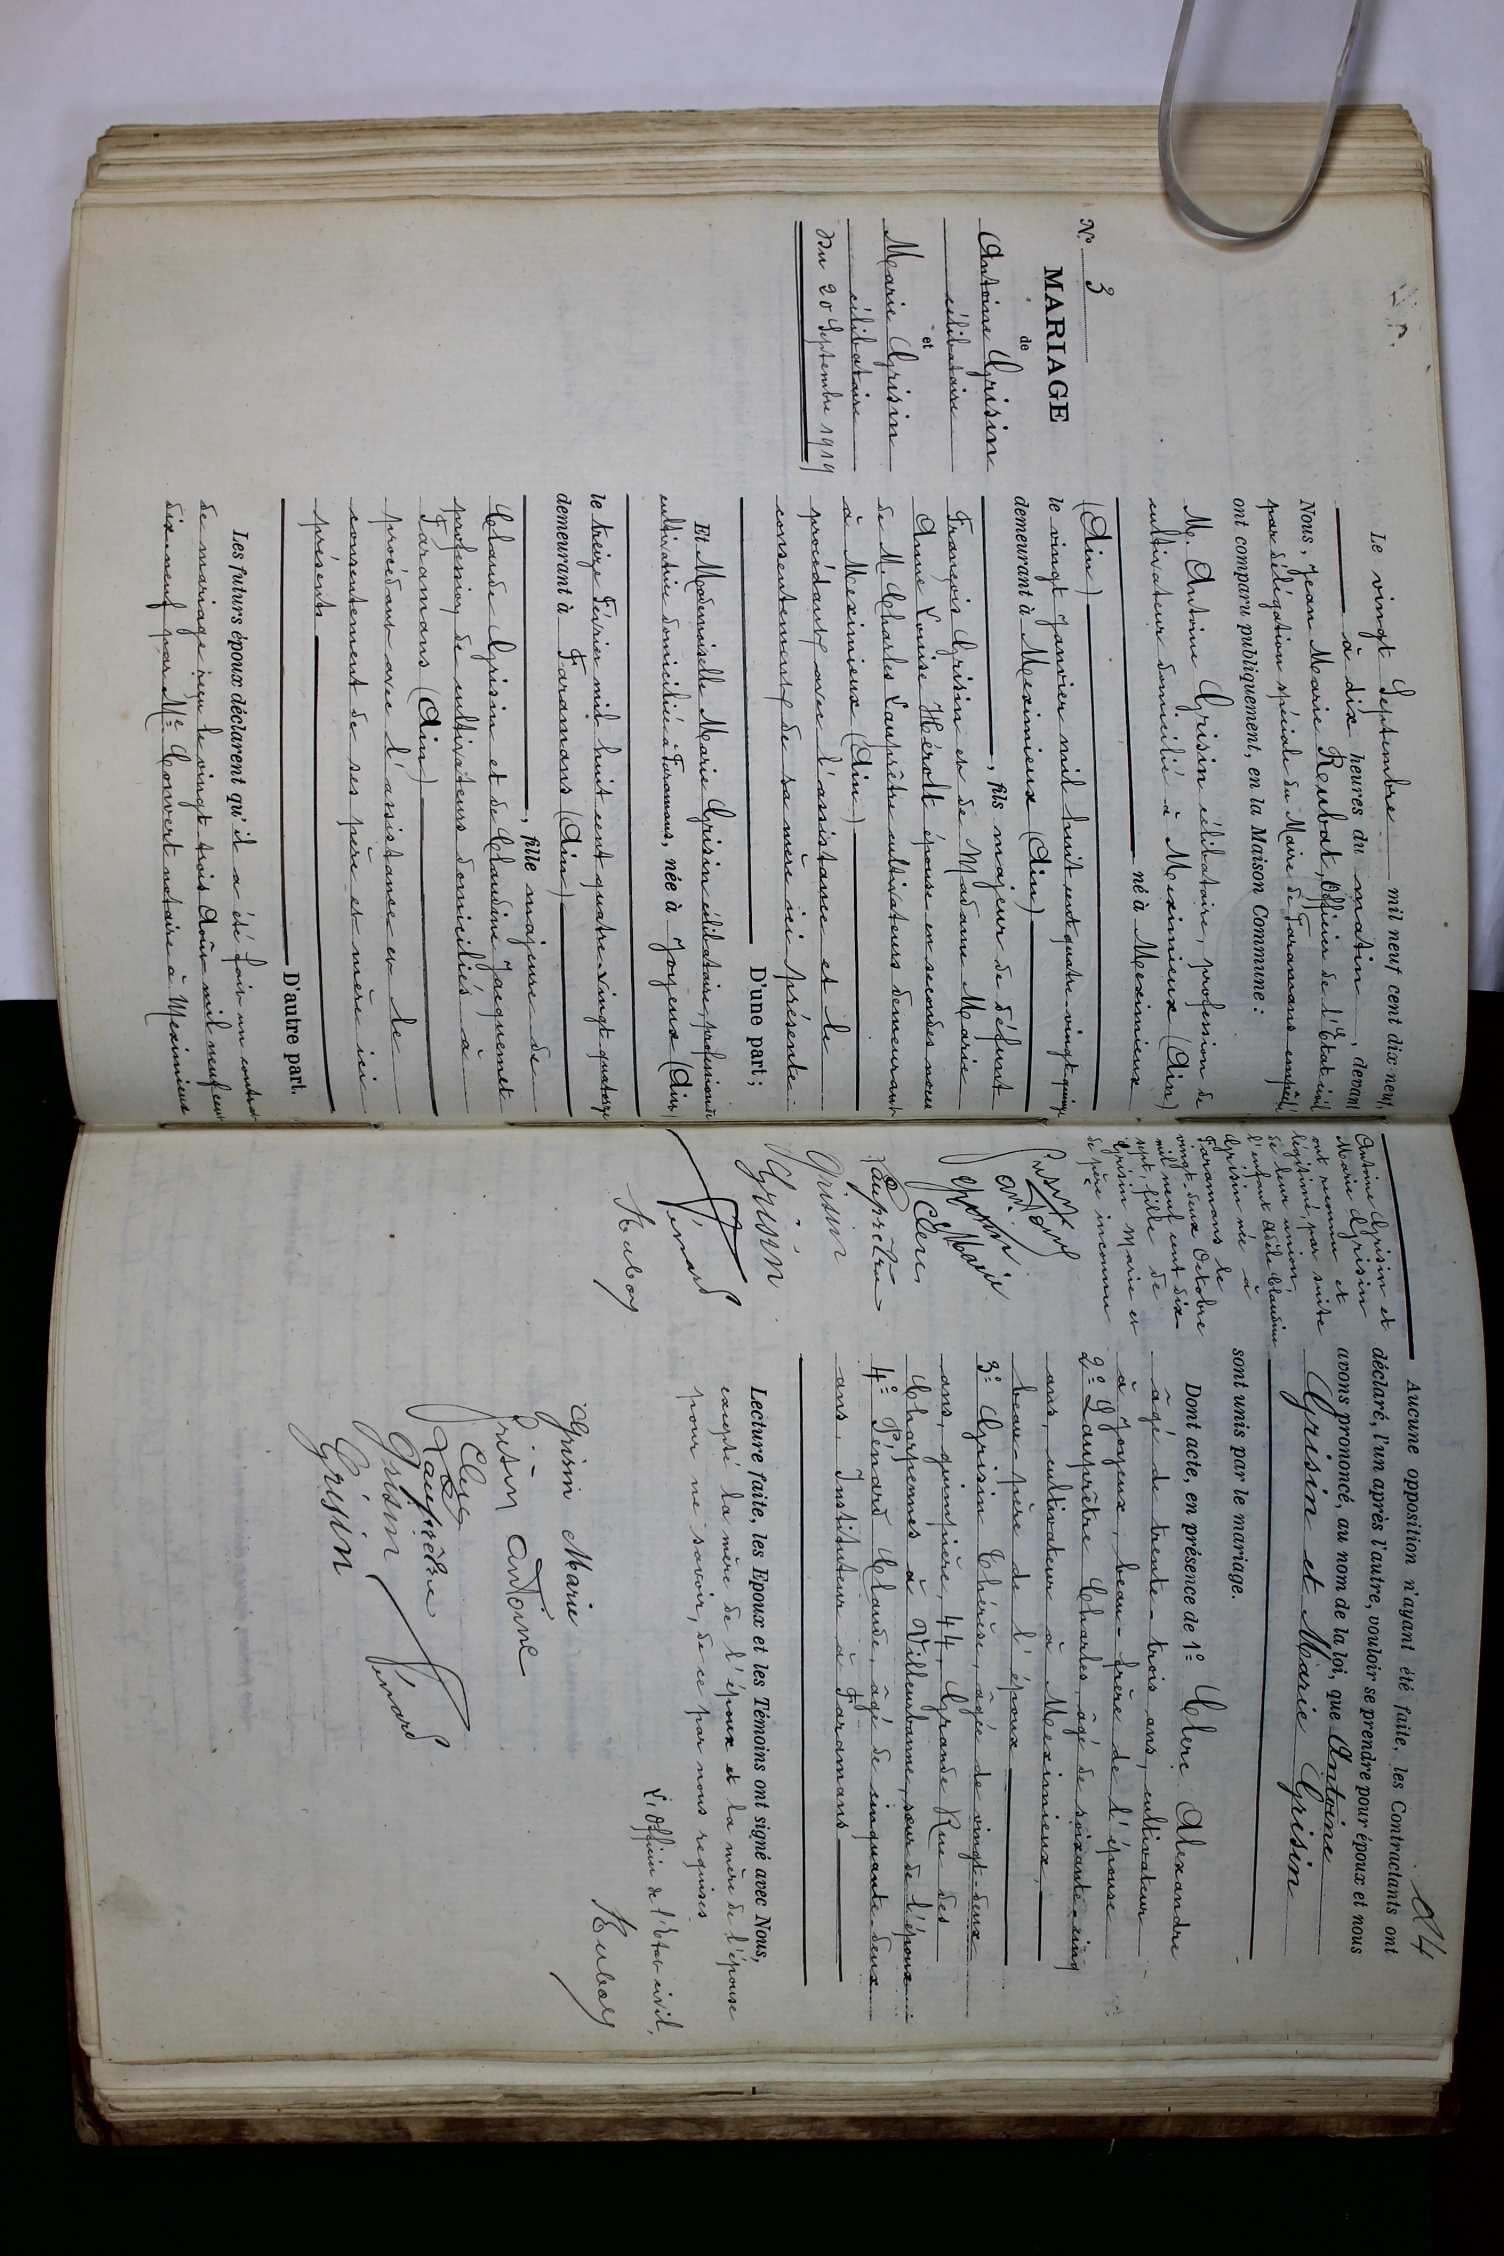 N° 3
MARIAGE
de
Antoine Grisin
célibataire
et
Marie Grisin
célibataire
Du 20 Septembre 1919
Le vingt Septembre mil neuf cent dix-neuf,
à dix heures du matin, devant
Nous, Jean Marie Reubat, Officier de l'Etat civil
par délégation spéciale du Maire de Faramans empêché
ont comparu publiquement, en la Maison Commune :
M. Antoine Grisin célibataire, profession de
cultivateur domicilié à Meximieux (Ain)
né à Meximieux
(Ain)
le vingt Janvier mil huit cent quatre vingt quinze
demeurant à Meximieux (Ain)
, fils majeur de défunt
François Grisin et de Madame Marie
Anne Louise Hérolt épouse en secondes noces
de M. Charles Lauprêtre cultivateurs demeurant
à Meximieux (Ain)
procédant avec l'assistance et le
consentement de sa mère ici présente
D'une part ;
Et Mademoiselle Marie Grisin célibataire, profession de
cultivatrice domiciliée à Faramans, née à Joyeux (Ain)
le treize Février mil huit cent quatre-vingt quatorze
demeurant à Faramans (Ain)
, fille majeure de
Claude Grisin et de Claudine Jacquemet
profession de cultivateurs domiciliés à
Faramans (Ain)
procédant avec l'assistance et le
consentement de ses père et mère ici
présents
D'autre part.
Les futurs époux déclarent qu'il a été fait un contrat
de mariage reçu le vingt trois Août mil neuf cent
dix-neuf par Me Convert notaire à Meximieux
24
Aucune opposition n'ayant été faite, les Contractants ont
déclaré, l'un après l'autre, vouloir se prendre pour époux et nous
avons prononcé, au nom de la loi, que Antoine
Grisin et Marie Grisin
sont unis par le mariage.
Dont acte, en présence de 1° Clerc Alexandre
âgé de trente-trois ans, cultivateur
à Joyeux, beau-frère de l'épouse
2° Lauprêtre Charles, âgé de soixante-cinq
ans, cultivateur à Meximieux,
beau-père de l'époux
3° Grisin Thérèse, âgée de vingt-deux
ans, guimpière, 44, Grande Rue des
Charpennes à Villeurbanne, sœur de l'époux
4° Pénard Claude, âgé de cinquante-deux
ans, Instituteur à Faramans
Lecture faite, les Epoux et les Témoins ont signé avec Nous,
excepté la mère de l'époux et la mère de l'épouse
pour ne savoir, de ce par nous requises
L'Officier de l'Etat civil,
Grisin Marie
Grisin Antoine
Clerc
Lauprêtre
Grisin
Grisin
Pénard
Antoine Grisin et
Marie Grisin
ont reconnu et
légitimé, par suite
de leur union,
l'enfant Adèle Claudine
Grisin née à
Faramans le
vingt-deux Octobre
mil neuf cent dix-
sept, fille de
Grisin Marie et
de père inconnu
Grisin Marie
Clerc
Lauprêtre
Grisin
Grisin
Pénard